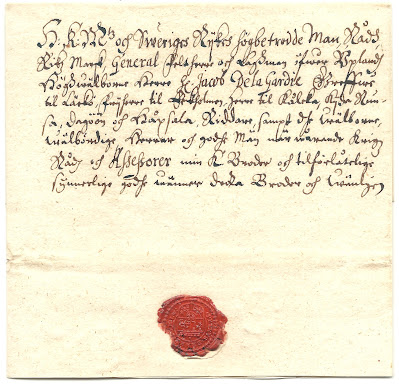 H. K. M:tz och Sweriges Rykes högbetrodde Man, Rådh
Rikz Marsk, General Feltherre och Lagman öfwer Uplandh
Högwälborne Herre H. Jacob De la Gardie Greffwe
til Läckö, friherre til Eekholmen, herre til Kålcka, Kyda Run-
sa, Dagöön och Hapsala Riddare, sampt dhe wälborne,
wälbördige, Herrar och godhe Män när warande Krigz
Rådh och Assessorer min K Broder och tilförlåtelige
synnerlige godhe wänner desse Broder och